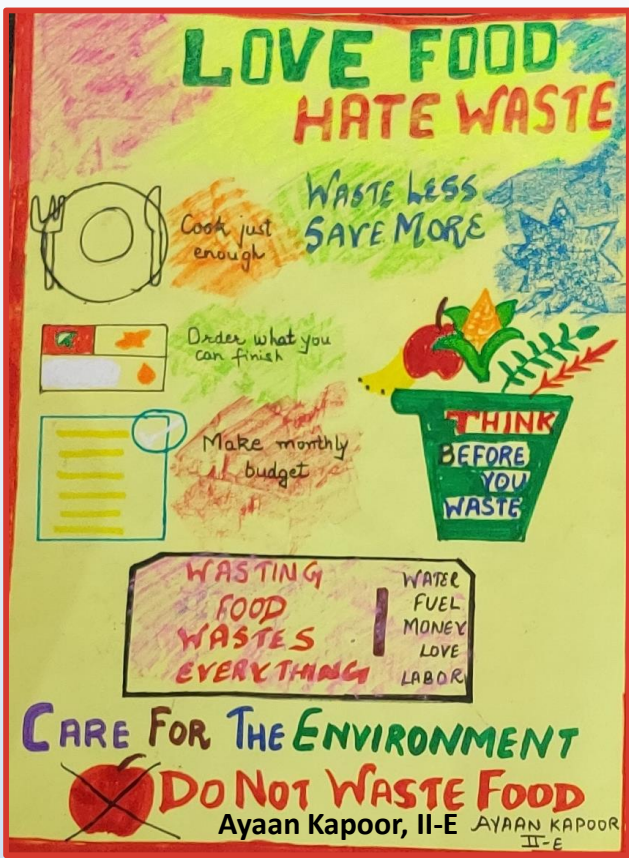 LOVE FOOD
HATE WASTE
WASTE LESS
SAVE MORE
Cook just
enough
Order what you
can finish
Make monthly
budget
THINK
BEFORE
YOU
WASTE
WASTING
FOOD
WASTES
EVERYTHING
WATER
FUEL
MONEY
LOVE
LABOR
CARE FOR THE ENVIRONMENT
DO NOT WASTE FOOD
Ayaan Kapoor, II-E
AYAAN KAPOOR
II-E